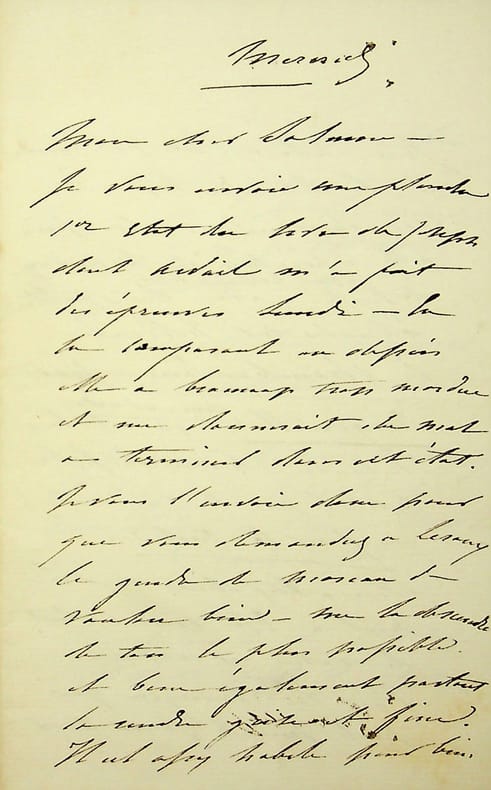 Mercredi.
Mon cher Salmon —
Je vous envoie une planche
1er Etat du livre de Joseph
dont m'a fait
des épreuves Lundi — En
la comparant au dessin
elle a beaucoup trop mordue
et me donnerait du mal
a terminer dans cet état.
Je vous l'envoie donc pour
que vous demandiez a
le gendre de
vouloir bien — me la descendre
de ton le plus possible.
et bien également partout
la rendre grise et fine.
Il est assez habile pour bien